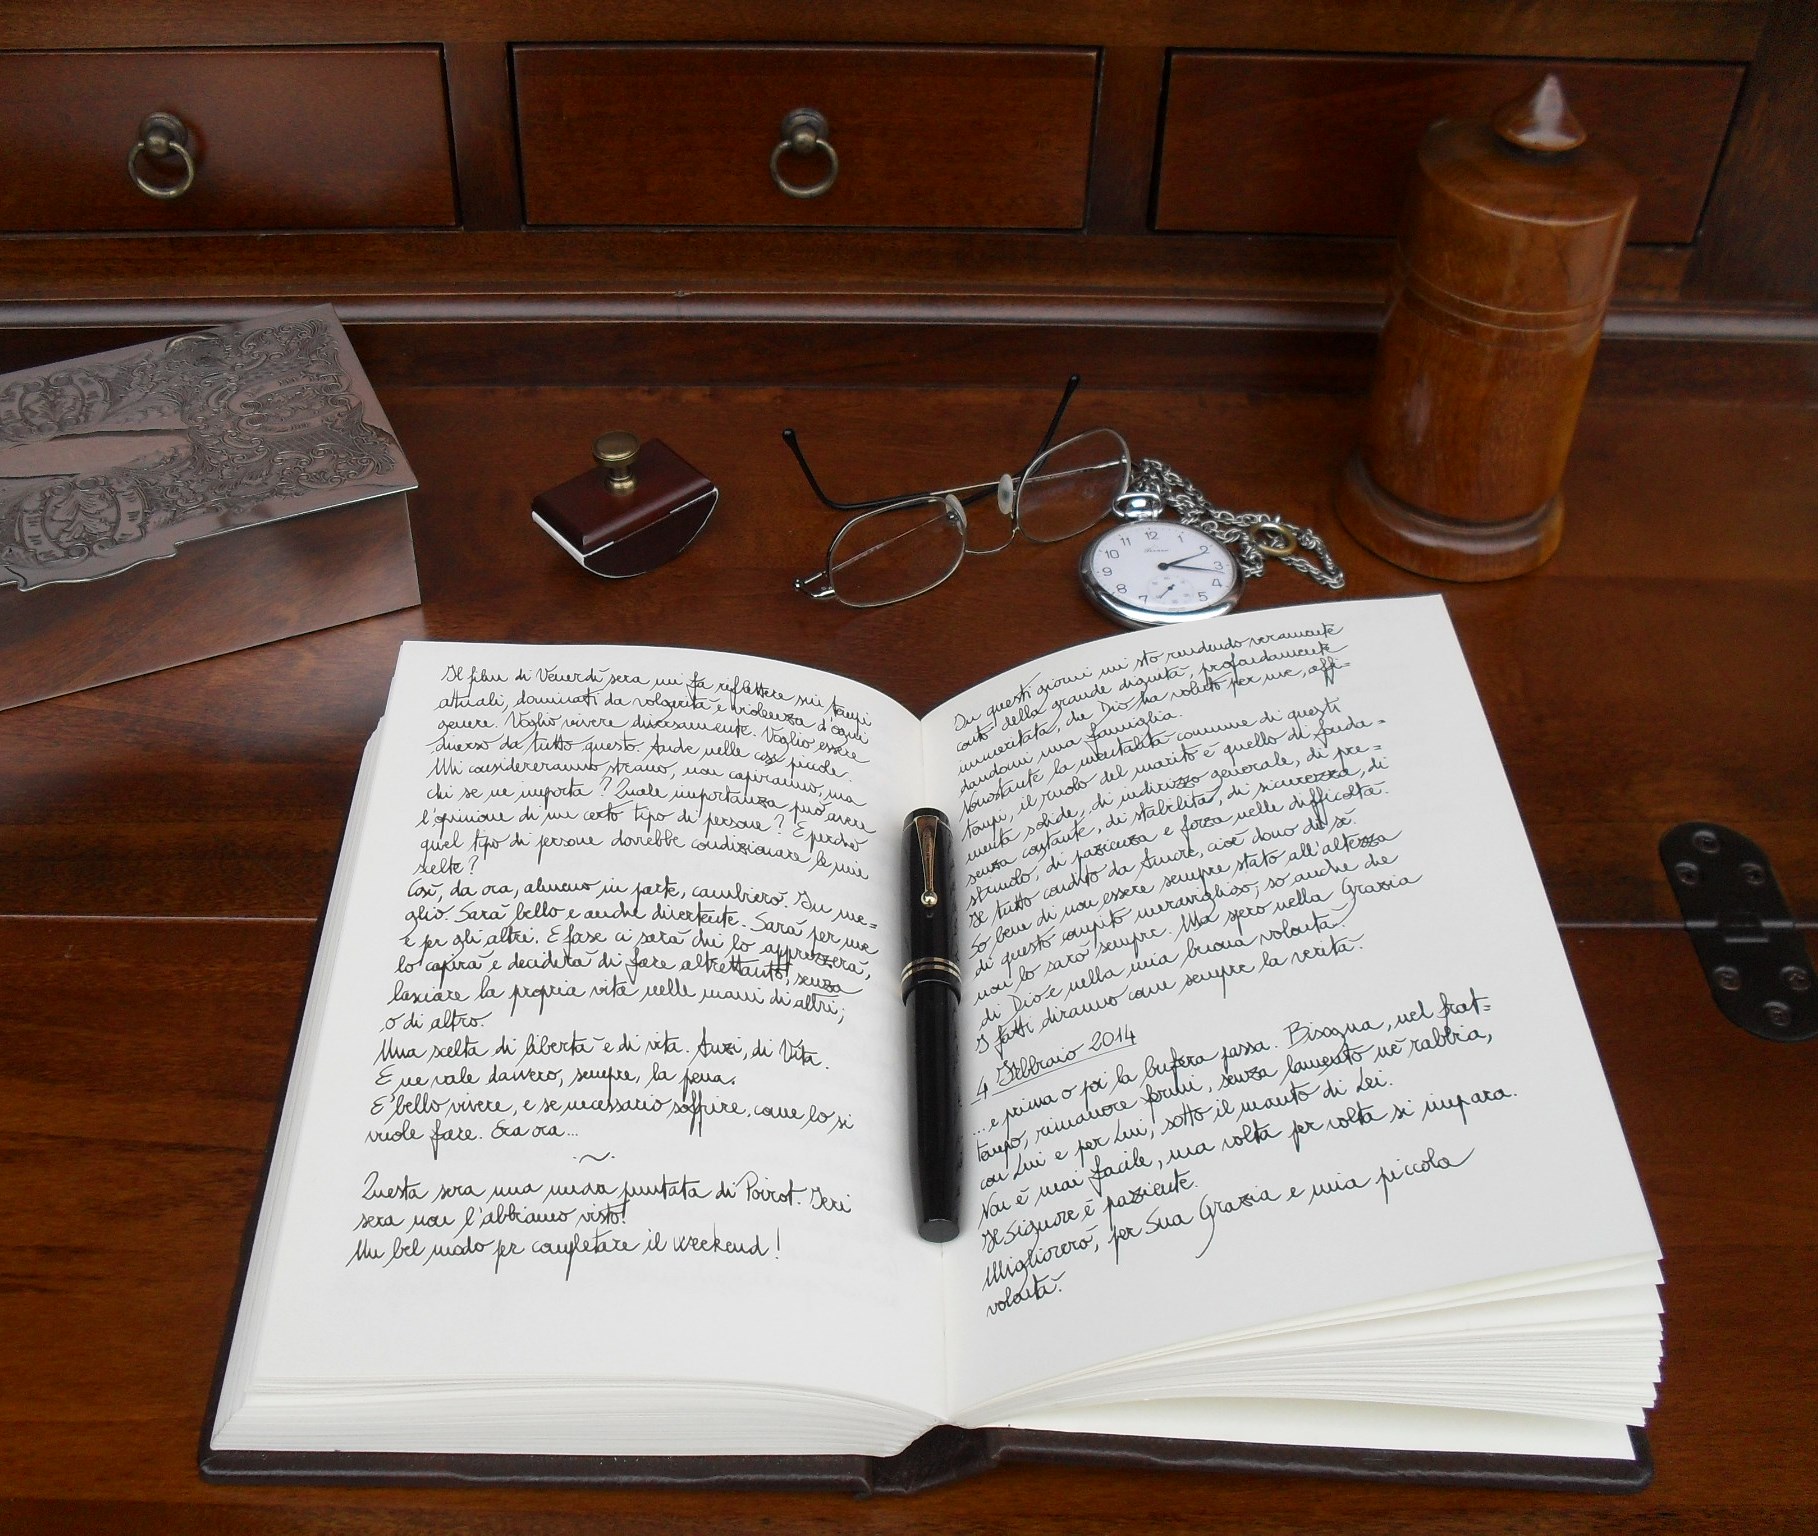 Il film di Venerdì sera mi fa riflettere sui tempi
attuali, dominati da volgarità e violenza d'ogni
genere. Voglio vivere diversamente. Voglio essere
diverso da tutto questo. Anche nelle cose piccole.
Mi considereranno strano, non capiranno, ma
chi se ne importa? Quale importanza può avere
l'opinione di un certo tipo di persone? E perché
quel tipo di persone dovrebbe condizionare le mie
scelte?
Così, da ora, almeno in parte, cambierò. In me=
glio. Sarà bello e anche divertente. Sarà per me
e per gli altri. E forse ci sarà chi lo apprezzerà,
lo capirà e deciderà di fare altrettanto, senza
lasciare la propria vita nelle mani di altri,
o di altro.
Una scelta di libertà e di vita. Anzi, di Vita.
E ne vale davvero, sempre, la pena.
E' bello vivere, e se necessario soffrire, come lo si
vuole fare. Era ora...
~
Questa sera una nuova puntata di Poirot. Ieri
sera non l'abbiamo visto!
Un bel modo per completare il weekend!
In questi giorni mi sto rendendo veramente
conto della grande dignità, profondamente
immeritata, che Dio ha voluto per me, affi=
dandomi una famiglia.
Nonostante la mentalità comune di questi
tempi, il ruolo del marito è quello di fonda=
menta solide, di indirizzo generale, di pre=
senza costante, di stabilità, di sicurezza, di
stimolo, di pazienza e forza nelle difficoltà.
Il tutto condito da Amore, cioè dono di sé.
So bene di non essere sempre stato all'altezza
di questo compito meraviglioso; so anche che
non lo sarò sempre. Ma spero nella Grazia
di Dio e nella mia buona volontà.
I fatti diranno come sempre la verità.
4 Febbraio 2014
...e prima o poi la bufera passa. Bisogna, nel frat=
tempo, rimanere fermi, senza lamento né rabbia,
con Lui e per Lui, sotto il manto di Lei.
Non è mai facile, ma volta per volta si impara.
Il Signore è paziente.
Migliorerò, per Sua Grazia e mia piccola
volontà.
12
1
2
3
5
7
8
9
10
11